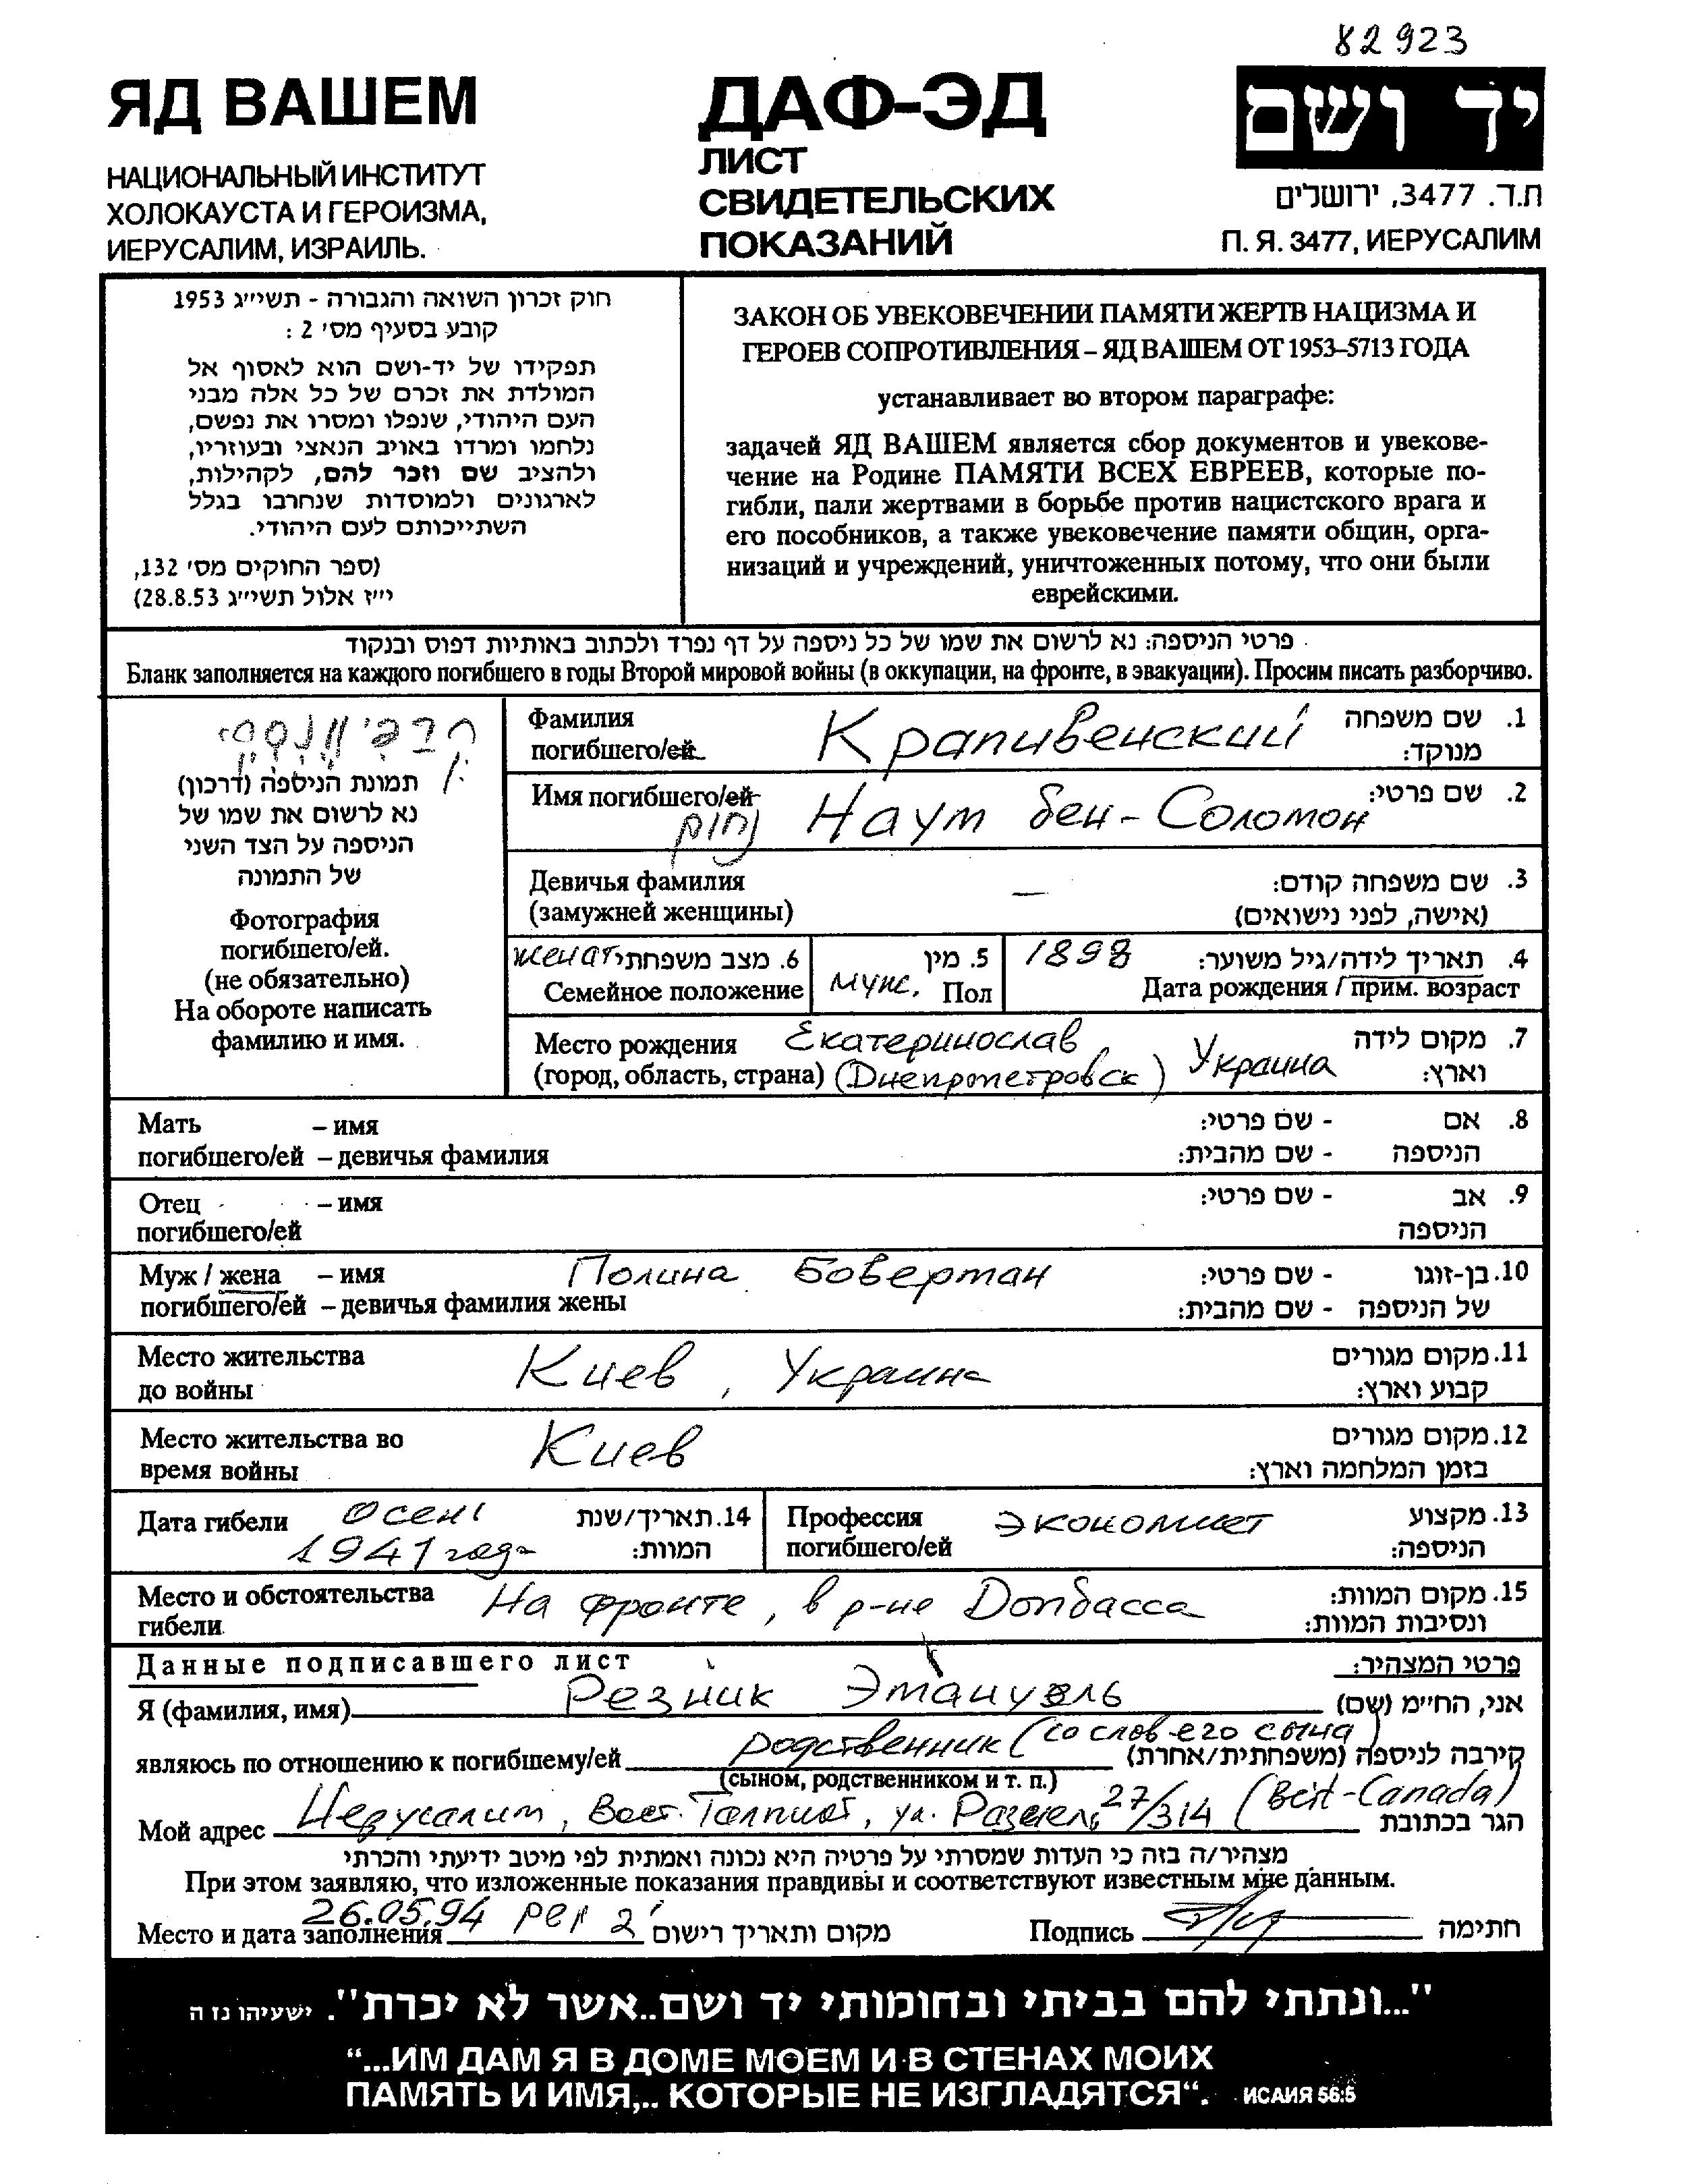 82923
ЯД ВАШЕМ
НАЦИОНАЛЬНЫЙ ИНСТИТУТ
ХОЛОКАУСТА И ГЕРОИЗМА,
ИЕРУСАЛИМ, ИЗРАИЛЬ.
ДАФ-ЭД
ЛИСТ
СВИДЕТЕЛЬСКИХ
ПОКАЗАНИЙ
יד ושם
ת.ד. 3477, ירושלים
П. Я. 3477, ИЕРУСАЛИМ
חוק זכרון השואה והגבורה - תשי״ג 1953
קובע בסעיף מס׳ 2 :
תפקידו של יד-ושם הוא לאסוף אל
המולדת את זכרם של כל אלה מבני
העם היהודי, שנפלו ומסרו את נפשם,
נלחמו ומרדו באויב הנאצי ובעוזריו,
ולהציב שם וזכר להם, לקהילות,
לארגונים ולמוסדות שנחרבו בגלל
השתייכותם לעם היהודי.
(ספר החוקים מס׳ 132,
י״ז אלול תשי״ג 28.8.53)
ЗАКОН ОБ УВЕКОВЕЧЕНИИ ПАМЯТИ ЖЕРТВ НАЦИЗМА И
ГЕРОЕВ СОПРОТИВЛЕНИЯ – ЯД ВАШЕМ ОТ 1953–5713 ГОДА
устанавливает во втором параграфе:
задачей ЯД ВАШЕМ является сбор документов и увекове-
чение на Родине ПАМЯТИ ВСЕХ ЕВРЕЕВ, которые по-
гибли, пали жертвами в борьбе против нацистского врага и
его пособников, а также увековечение памяти общин, орга-
низаций и учреждений, уничтоженных потому, что они были
еврейскими.
פרטי הניספה: נא לרשום את שמו של כל ניספה על דף נפרד ולכתוב באותיות דפוס ובנקוד
Бланк заполняется на каждого погибшего в годы Второй мировой войны (в оккупации, на фронте, в эвакуации). Просим писать разборчиво.
תמונת הניספה (דרכון)
נא לרשום את שמו של
הניספה על הצד השני
של התמונה
Фотография
погибшего/ей.
(не обязательно)
На обороте написать
фамилию и имя.
Фамилия Крапивенский 1. שם משפחה
погибшего/ей מנוקד:
Имя погибшего/ей Наум бен-Соломон 2. שם פרטי:
נחום
Девичья фамилия — 3. שם משפחה קודם:
(замужней женщины) (אישה, לפני נישואים)
женат 6. מצב משפחתי
Семейное положение
5. מין
муж. Пол
1898 4. תאריך לידה/גיל משוער:
Дата рождения / прим. возраст
Место рождения Екатеринослав 7. מקום לידה
(город, область, страна) (Днепропетровск) Украина וארץ:
Мать – имя 8. אם - שם פרטי:
погибшего/ей – девичья фамилия הניספה - שם מהבית:
Отец – имя 9. אב - שם פרטי:
погибшего/ей הניספה
Муж / жена – имя Полина Боверман 10. בן-זוגו - שם פרטי:
погибшего/ей – девичья фамилия жены של הניספה - שם מהבית:
Место жительства Киев, Украина 11. מקום מגורים
до войны קבוע וארץ:
Место жительства во Киев 12. מקום מגורים
время войны בזמן המלחמה וארץ:
Дата гибели осень 14. תאריך/שנת
1941 года המוות:
Профессия экономист 13. מקצוע
погибшего/ей הניספה:
Место и обстоятельства На фронте, в р-не Донбасса 15. מקום המוות:
гибели ונסיבות המוות:
Данные подписавшего лист פרטי המצהיר:
Я (фамилия, имя) Резник Эмануэль אני, החי״מ (שם)
являюсь по отношению к погибшему/ей родственник (со слов его сына) קירבה לניספה (משפחתית/אחרת)
(сыном, родственником и т. п.)
Мой адрес Иерусалим, Вост. Талпиот, ул. 27/314 (Beit-Canada) הגר בכתובת
מצהיר/ה בזה כי העדות שמסרתי על פרטיה היא נכונה ואמתית לפי מיטב ידיעתי והכרתי
При этом заявляю, что изложенные показания правдивы и соответствуют известным мне данным.
Место и дата заполнения 26.05.94 מקום ותאריך רישום Подпись חתימה
"...ונתתי להם בביתי ובחומותי יד ושם..אשר לא יכרת". ישעיהו נז ה
“...ИМ ДАМ Я В ДОМЕ МОЕМ И В СТЕНАХ МОИХ
ПАМЯТЬ И ИМЯ,.. КОТОРЫЕ НЕ ИЗГЛАДЯТСЯ“. ИСАИЯ 56:5